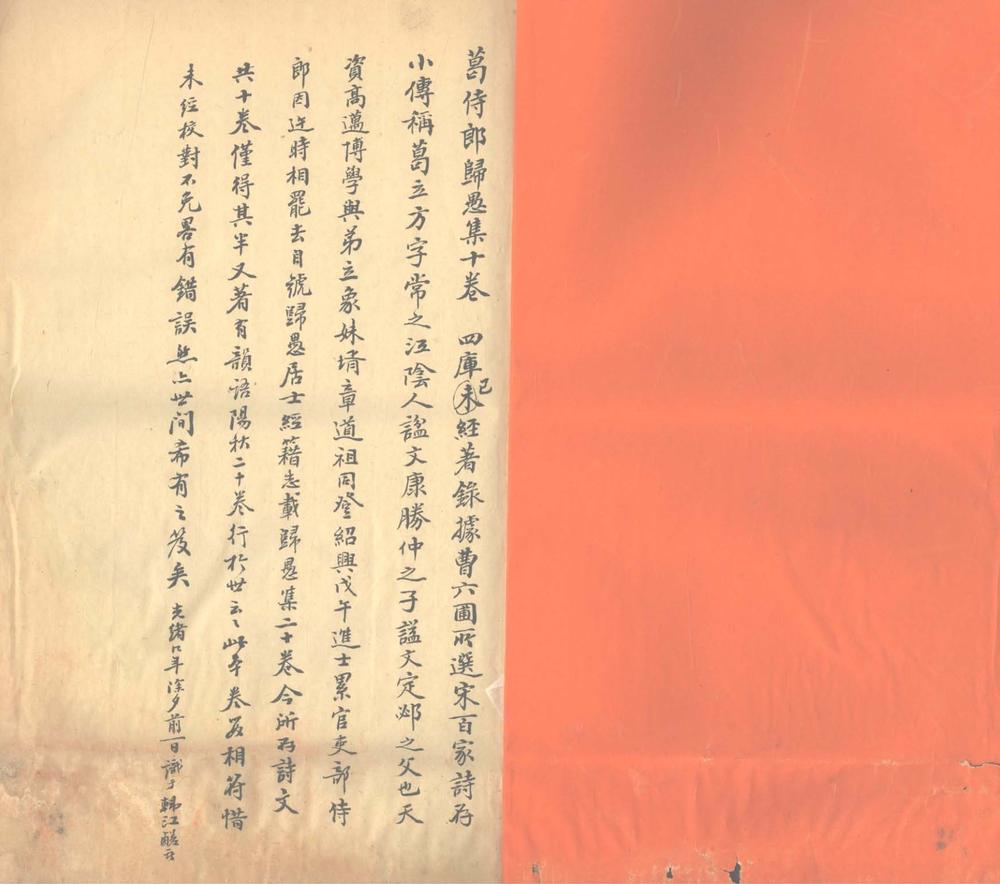 葛侍郎歸愚集十卷　四庫已未經著錄據曹六圃所選宋百家詩存
小傳稱葛立方字常之江陰人諡文康勝仲之子諡文定邲之父也天
資高邁博學與弟立象妹壻章道祖同登紹興戊午進士累官吏部侍
郎因迕時相罷去自號歸愚居士經籍志載歸愚集二十卷今所存詩文
共十卷僅得其半又著有韻語陽秋二十卷行於世云〻此本卷數相符惜
未經校對不免畧有錯誤然亦世間希有之笈矣
光緒 年除夕前一日識于韩江